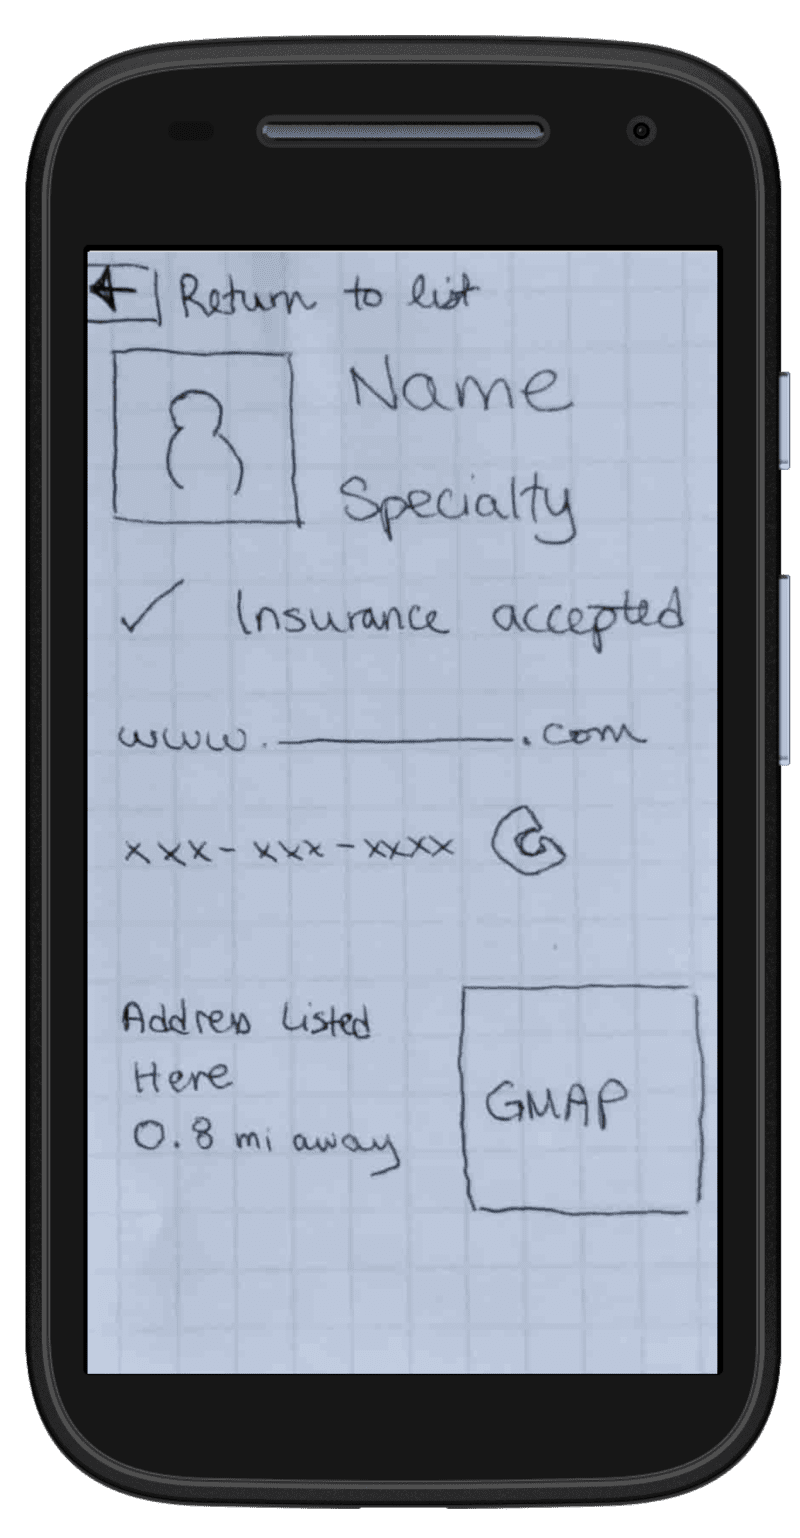 Return to list
Name
Specialty
Insurance accepted
www.________.com
xxx-xxx-xxxx
Address Listed
Here
0.8 mi away
GMAP